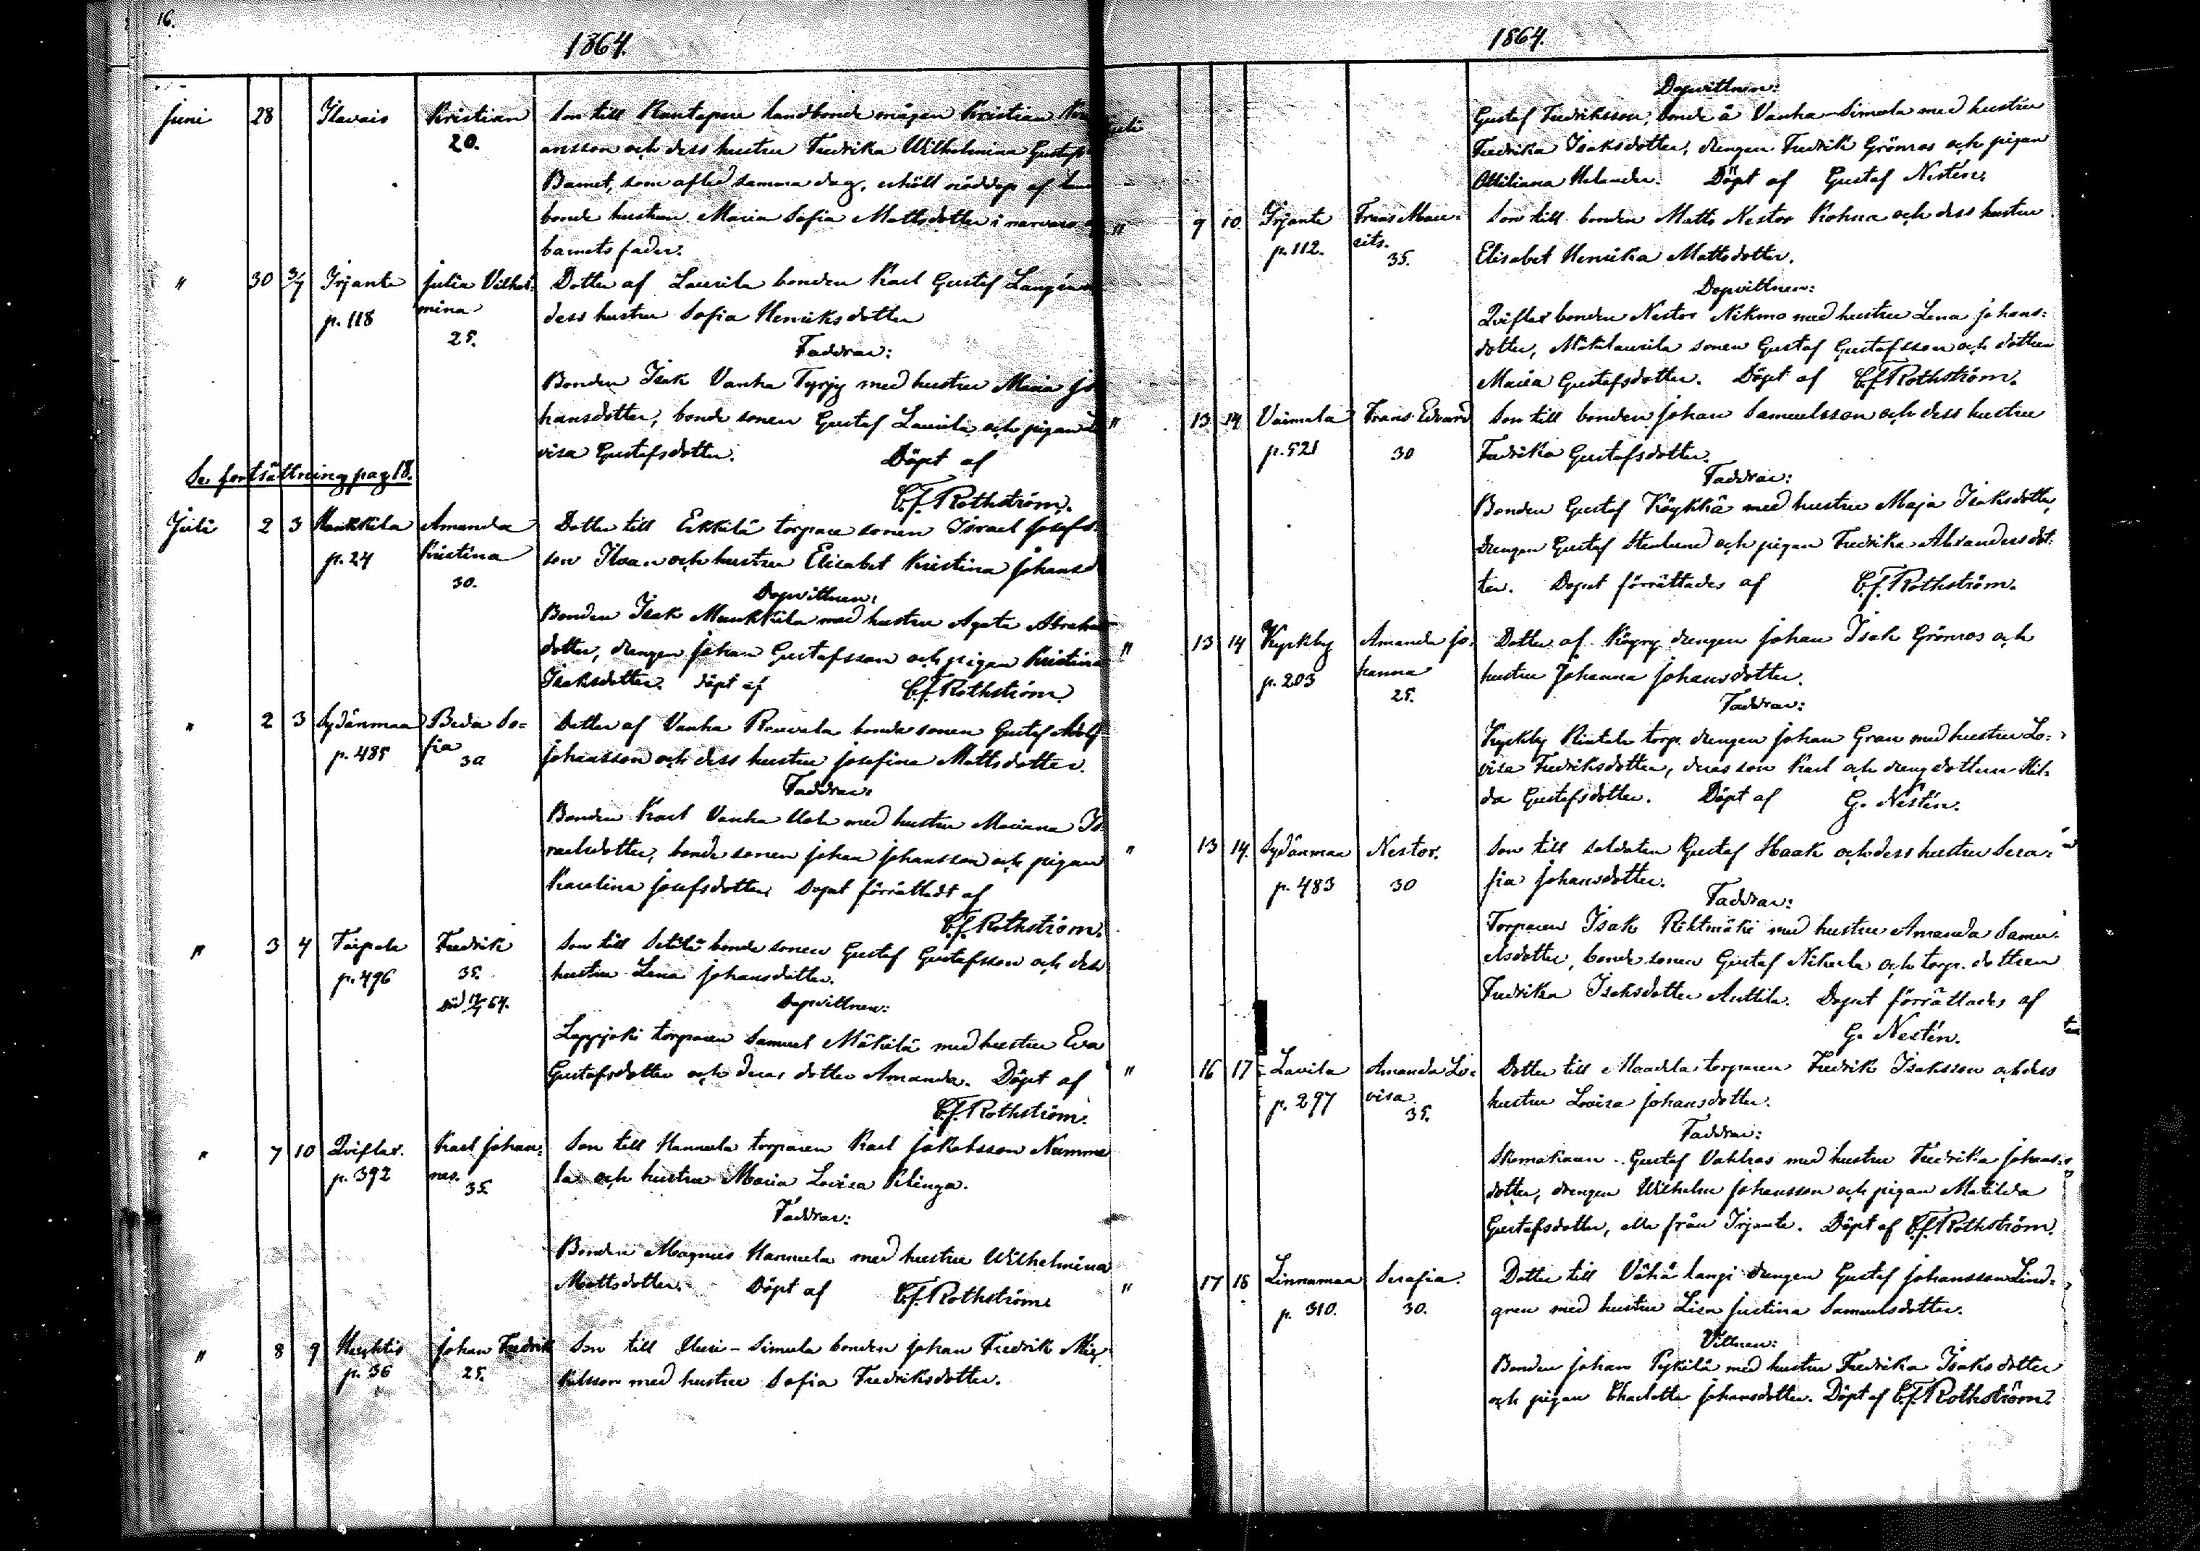 16.
1864.
Juni 28 Ilavais Kristian Son till Rantapere landbonde mågen Kristian
20. ansson och dess hustru Fredrika Wilhelmina Gustafs
Barnet, som afled samma dag, erhöll nöddop af
bonde hustrun Maria Sofia Mattsdotter i närvaro
barnets fader.
" 30 3/7 Irjante Julia Vilhel- Dotter af Laurila bonden Karl Gustaf
p. 118 mina dess hustru Sofia Henriksdotter
25.
Faddrar:
Bonden Isak Vanha Tyrjy med hustru Maria Jo
hansdotter, bonde sonen Gustaf Laurila och pigan
visa Gustafsdotter. Döpt af
Se fortsättning pag 18.
C.f. Rothström.
Juli 2 3 Amanda Dotter till Erkkilä torpare sonen Israel Josefs-
p. 24 Kristina son och hustru Elisabet Kristina Johansd
30.
Dopvittnen:
Bonden Isak med hustru Agata Abraha
dotter, drengen Johan Gustafsson och pigan Kristina
Isaksdotter. döpt af C.f. Rothström.
" 2 3 Sydänmaa Beda So- Dotter af Vanha bonde sonen Gustaf Adolf
p. 485 fia 30 Johansson och dess hustru Josefina Mattsdotter.
Faddrar:
Bonden Karl Vanha med hustru Mariana Is
raelsdotter, bonde sonen Johan Johansson och pigan
Karolina Josefsdotter. Dopet förrättadt af
C.f. Rothström.
" 3 4 Taipale Fredrik Son till Setälä bonde sonen Gustaf Gustafsson och dess
p. 496 35. hustru Lena Johansdotter.
Död 64.
Dopvittnen:
Lappjoki torparen Samuel Mäkelä med hustru Eva
Gustafsdotter och deras dotter Amanda. Döpt af
C.f. Rothström.
" 7 10 Qviflax. Karl Johan- Son till Hannula torparen Karl Jakobsson Numme
p. 392 nes. 35. la och hustru Maria Lovisa Klinga.
Faddrar:
Bonden Magnus Hannula med hustru Wilhelmina
Mattsdotter. Döpt af C.f. Rothström.
" 8 9 Huhtis Johan Fredrik Son till Uusi-Simula bonden Johan Fredrik Mic
p. 36 25. kelsson med hustru Sofia Fredriksdotter.
1864.
Juli
Dopvittnen:
Gustaf Fredriksson, bonde å Vanha-Simula med hustru
Fredrika Isaksdotter, drengen Fredrik Grönros och pigan
Ottiliana Helander. Döpt af Gustaf Nestén.
" 9 10 Irjante Frans Mau- Son till bonden Matts Nestor Kohna och dess hustru
p. 112. rits. 35. Elisabet Henrika Mattsdotter.
Dopvittnen:
Qviflax bonden Nestor Nikmo med hustru Lena Johans-
dotter, Mäkilaurila sonen Gustaf Gustafsson och dottren
Maria Gustafsdotter. Döpt af C.f. Rothström.
" 13 14 Väimala Frans Edvard Son till bonden Johan Samuelsson och dess hustru
p. 521 30 Fredrika Gustafsdotter.
Faddrar:
Bonden Gustaf Köykkä med hustru Maja Isaksdotter,
drengen Gustaf Stenlund och pigan Fredrika Alexandersdot-
ter. Dopet förrättades af C.f. Rothström.
" 13 14 Kyrkby Amanda Jo- Dotter af drengen Johan Isak Grönros och
p. 203 hanna hustru Johanna Johansdotter.
25.
Faddrar:
Kyrkby torp. drengen Johan Gran med hustru Lo-
visa Fredriksdotter, deras son Karl och dreng dottren Hil-
da Gustafsdotter. Döpt af G. Nestén.
" 13 14 Sydänmaa Nestor. Son till soldaten Gustaf Haak och dess hustru Sera-
p. 483 30 fia Johansdotter.
Faddrar:
Torparen Isak med hustru Amanda Samu-
elsdotter, bonde sonen Gustaf Nikula och torp. dottren
Fredrika Isaksdotter Anttila. Dopet förrättades af
G. Nestén.
" 16 17 Lavila Amanda Lo- Dotter till torparen Fredrik Isaksson och dess
p. 297 visa. 35. hustru Lovisa Johansdotter.
Faddrar:
Skomakaren Gustaf Vahlros med hustru Fredrika Johans-
dotter, drengen Wilhelm Johansson och pigan Matilda
Gustafsdotter, alla från Irjante. Döpt af C.f. Rothström.
" 17 18 Linnamaa Serafia. Dotter till Vähä langi drengen Gustaf Johansson Lind-
p. 310. 30. gren med hustru Lisa Justina Samuelsdotter.
Vittnen:
Bonden Johan Pykälä med hustru Fredrika Isaksdotter
och pigan Charlotta Johansdotter. Döpt af C.f. Rothström.